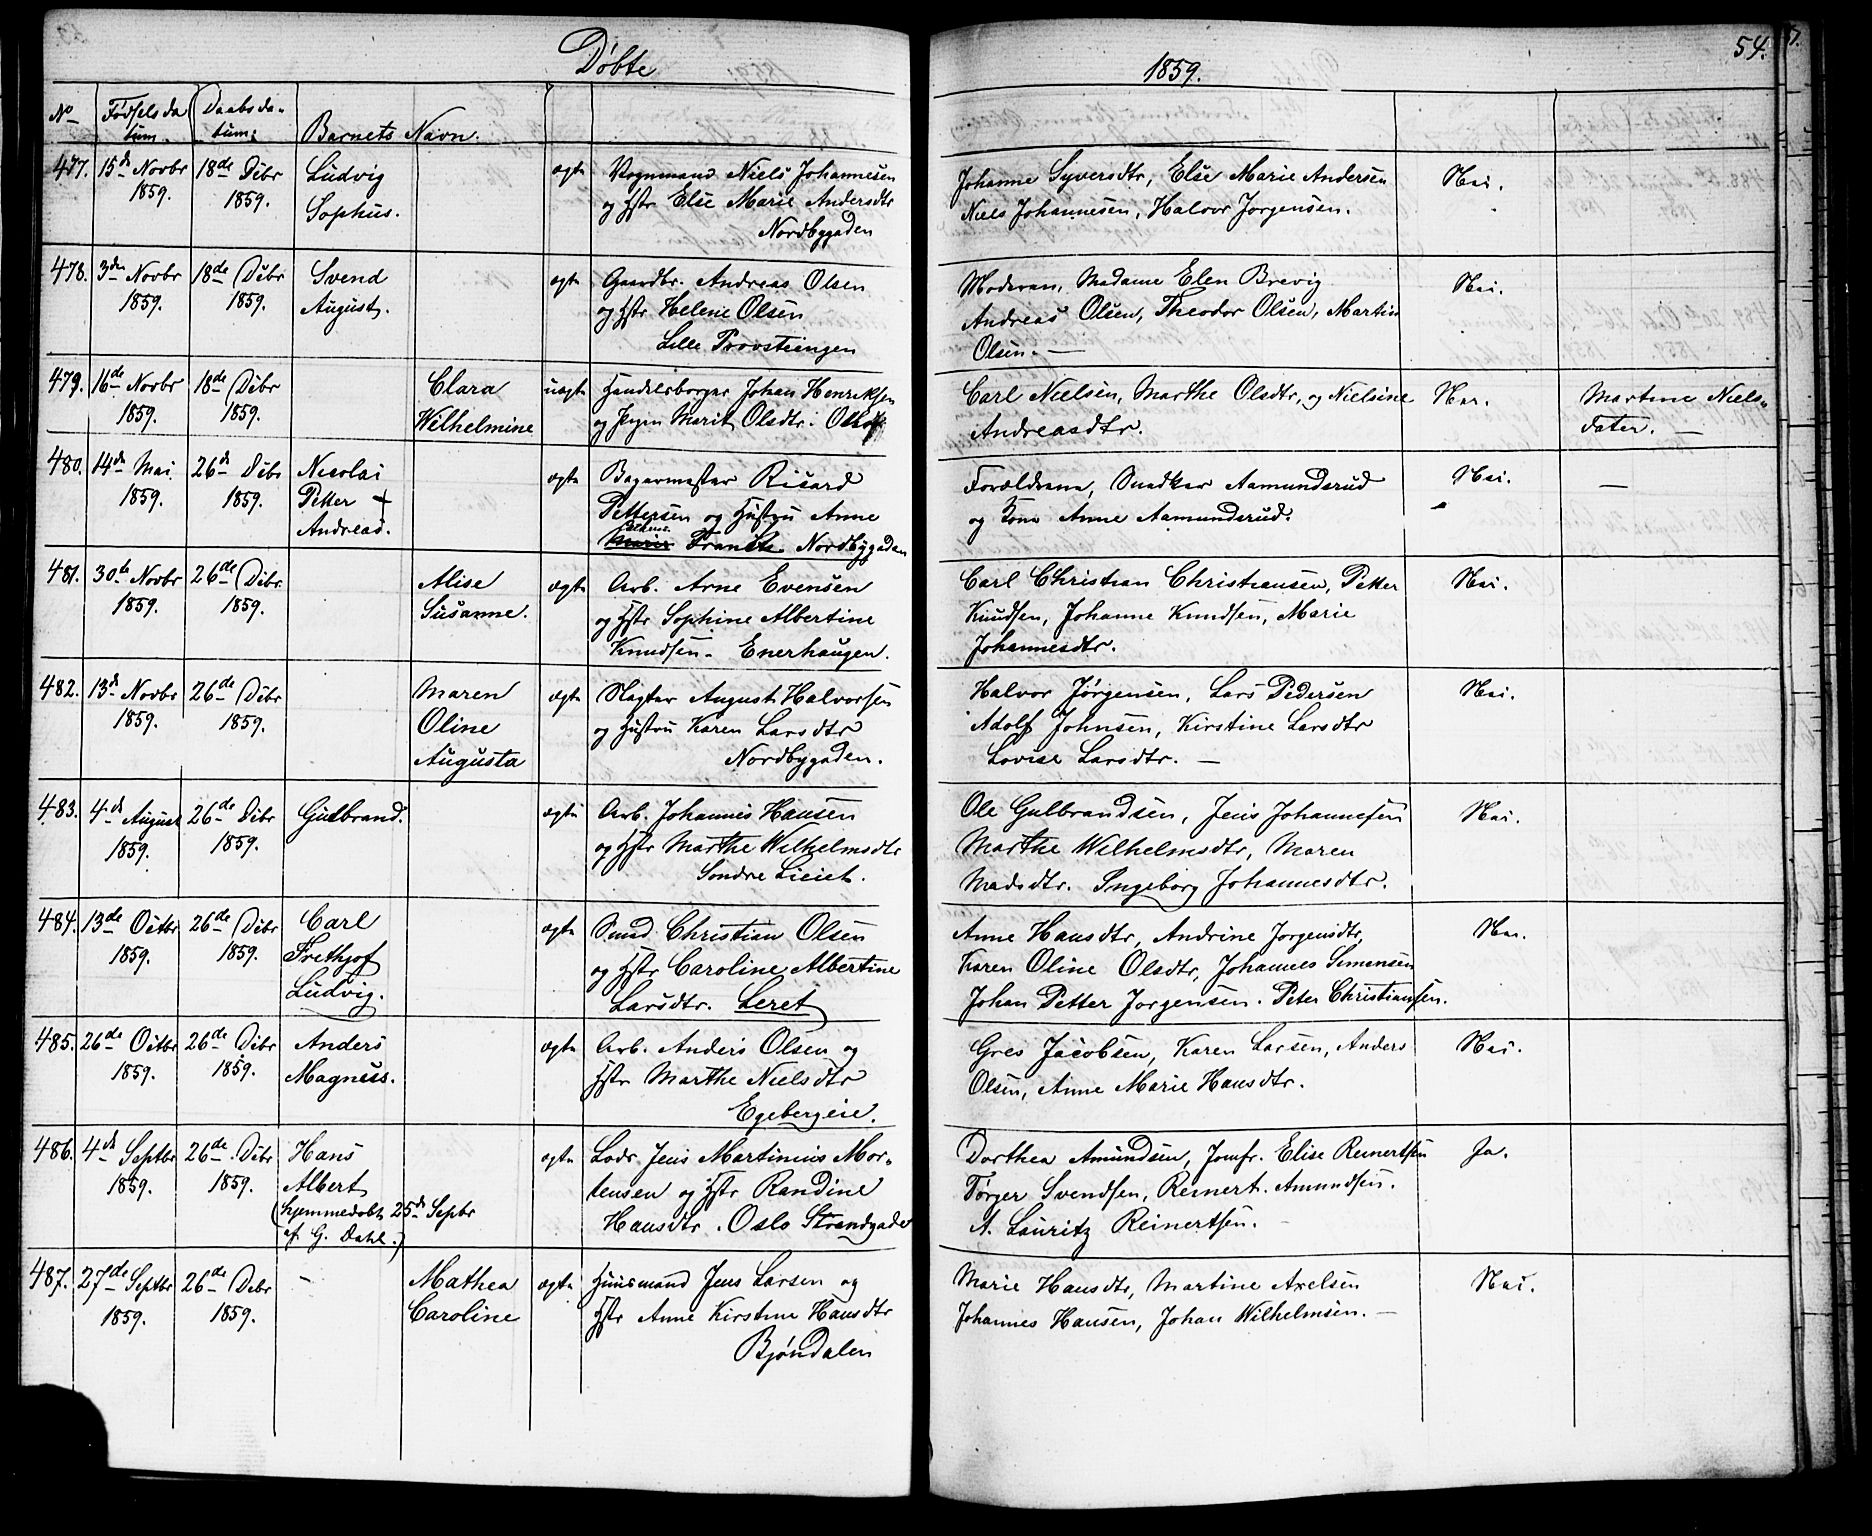 Døbte
1859.
54.
No Fødselsdatum. Daabsdatum: Barnets Navn.
477. 15de Novbr 1859. 18de Dcbr 1859. Ludvig Sophus. ægte
Vognmand Niels Johannesen
og Hstr Else Marie Andersdtr
Nordbygaden
Johanne Syversdtr, Else Marie Andersen
Niels Johannesen, Halvor Jørgensen.
Nei.
478. 3den Novbr 1859. 18de Dcbr 1859. Svend August. ægte
Gaardbr. Andreas Olsen
og Hstr Helene Olsen
Lille Provstiengen
Moderen, Madame Elen Brevig
Andreas Olsen, Theodor Olsen, Martin
Olsen. —
Nei.
479. 16de Novbr 1859. 18de Dcbr 1859. Clara Wilhelmine uægte
Handelsborger Johan Henriksen
og Pigen Marit Olsdtr. Oslo
Carl Nielsen, Marthe Olsdtr, og Nielsine
Andreasdtr.
Nei.
Martine Niels-
dater. —
480. 14de Mai 1859. 26de Dcbr 1859. Nicolai Petter + Andreas. ægte
Bagermester Ricard
Pettersen og Hustru Anne
Marie Franck. Nordbygaden
Forældrene, Snedker Aamundsrud
og Kone Anne Aamundsrud.
Nei. —
481. 30te Novbr 1859. 26de Dcbr 1859. Alise Susanne. ægte
Arb. Arne Evensen
og Hstr Sophine Albertine
Knudsen. Enerhaugen.
Carl Christian Christiansen, Petter
Knudsen, Johanne Knudsen, Marie
Johannesdtr.
Nei.
482. 13de Novbr 1859. 26de Dcbr 1859. Maren Oline Augusta ægte
Slagter August Halvorsen
og Hustru Karen Larsdtr
Nordbygaden.
Halvor Jørgensen, Lars Pedersen
Adolf Johnsen, Kirstine Larsdtr
Lovise Larsdtr. —
Nei.
483. 4de August 1859. 26de Dcbr 1859. Gulbrand. ægte
Arb. Johannes Hansen
og Hstr Marthe Wilhelmsdtr
Søndre Lieiet.
Ole Gulbrandsen, Jens Johannesen
Marthe Wilhelmsdtr, Maren
Madsdtr. Ingeborg Johannesdtr.
Nei.
484. 13de Octbr 1859. 26de Dcbr 1859. Carl Frethjof Ludvig. ægte
Smed Christian Olsen
og Hstr Caroline Albertine
Larsdtr. Leret
Anne Hansdtr, Andrine Jørgensdtr,
Karen Oline Olsdtr, Johannes Simensen
Johan Petter Jørgensen. Peter Christiansen.
Nei.
485. 26de Octbr 1859. 26de Dcbr 1859. Anders Magnus. ægte
Arb. Anders Olsen og
Hstr Marthe Nielsdtr
Egebergeie.
Gres Jacobsen, Karen Larsen, Anders
Olsen, Anne Marie Hansdtr.
Nei.
486. 4de Septbr 1859. 26de Dcbr 1859. Hans Albert (hjemmedøbt 25de Sepbr af G. Dahl.) ægte
Lods Jens Martinius Mor-
tensen og Hstr Randine
Hansdtr. Oslo Strandgade
Dorthea Amundsen, Jomfr. Elise Reinertsen
Tørger Svendsen, Reinert Amundsen.
A. Lauritz Reinertsen.
Ja.
487. 27de Septbr 1859. 26de Dcbr 1859. — Mathea Caroline ægte
Huusmand Jens Larsen og
Hstr Anne Kirstine Hansdtr
Bjøndalen
Marie Hansdtr, Martine Axelsen
Johannes Hansen, Johan Wilhelmsen. —
Nei.